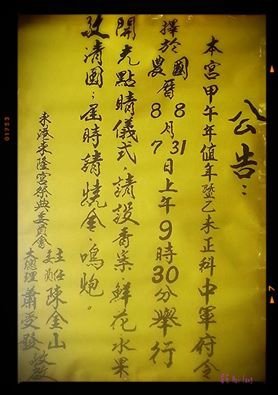 公告：
本宮甲午年值年暨乙未正科中軍府令
擇於國農曆8 8月31 7日上午9時30分舉行
開光點睛儀式，請設香案鮮花水果
屆時請燒金，鳴炮。
東港東隆宮祭典委員會
主任 陳金山
大總理 蕭受發
01753
7